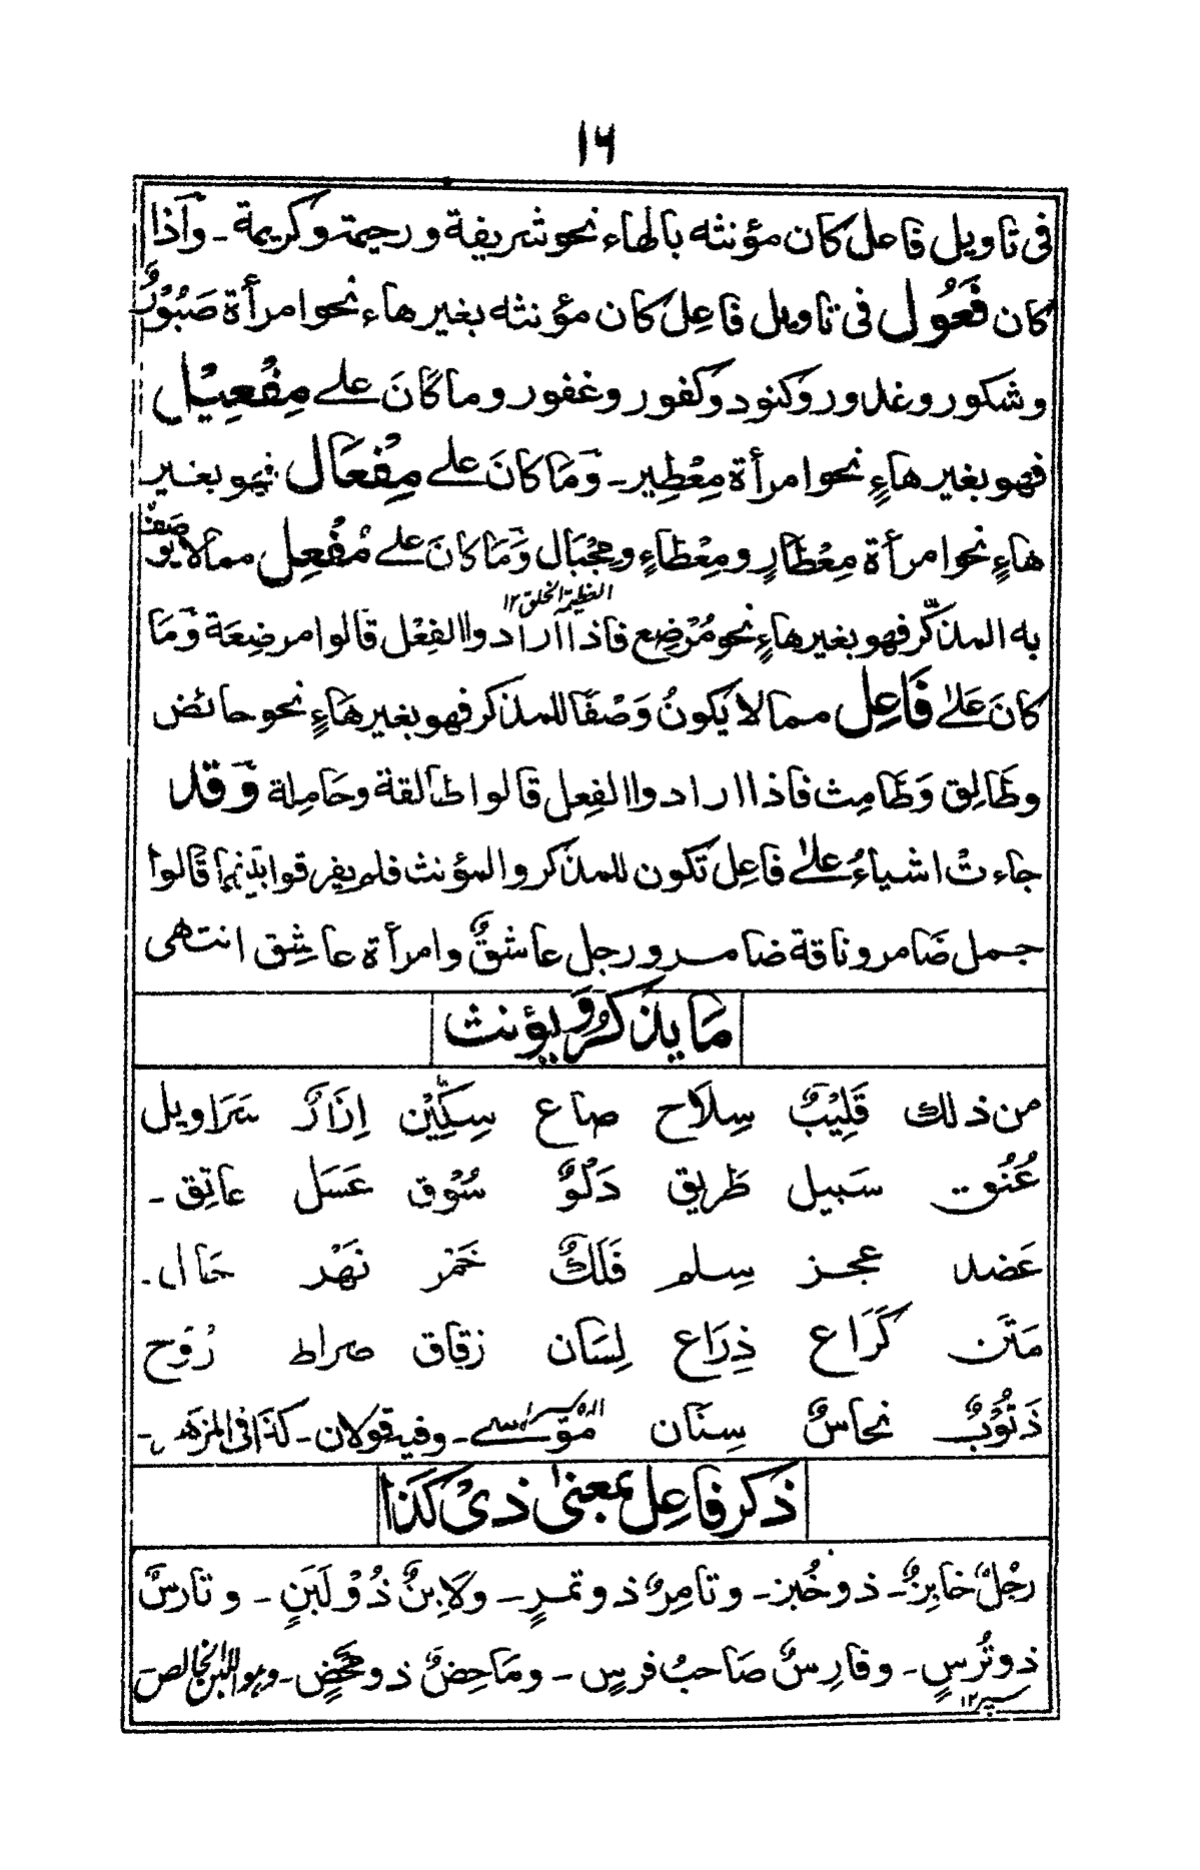 ۱۶
فى تاويل فاعل كان مؤنثه بالهاء نحو شريفة ورحيمة وكريمة ـ وَاذا
كان فَعُول فى تاويل فاعِل كان مؤنثه بغير هاء نحو امرأة صَبُوْرٌ
وشكور وغدور وكنود وكفور وغفور وما كَانَ علے مِفْعِيْل
فهو بغير هاءٍ نحو امرأة مِعْطِير ـ وَمَا كانَ علے مِفْعَال فهو بغير
هاءٍ نحو امرأة مِعْطَارٍ ومِعْطَاءٍ ومِجْبَال وَمَا كانَ علے مُفْعِل مما لا يوصف
العظيمة الخلق ۱۲
به المذكّر فهو بغير هاءٍ نحو مُرْضِع فاذا ارادوا الفِعْل قالوا مرضِعَة وَمَا
كانَ عَلىٰ فَاعِل مما لا يكونُ وَصْفًا للمذكر فهو بغير هَاءٍ نحو حائض
وطَالِق وَطَامِث فاذا ارادوا الفِعل قالوا طالقة وحَامِلة وَقد
جاءتْ اشياءُ علىٰ فاعِل تكون للمذكر والمؤنث فلم يفرقوا بينهما قالوا
جمل ضَامر وناقة ضامر ورجل عاشقٌ وامرأة عاشِق انتهى
مَا يذكرُ ويؤنث
من ذلك قَلِيْبٌ سِلَاح صاع سِكِّيْن اِزَارٌ سَرَاويل
عُنُوت سَبيل طَريق دَلْوٌ سُوْق عَسَل عاتِق ـ
عَضد عجز سِلم فَلَكٌ خَمْر نَهْر حَال ـ
مَتَن كَرَاع ذِرَاع لِسَان زقاق صراط رُوَح
ذَنُوْبٌ نحاسٌ سِنَان مُوْسے ـ وفيه قولان ـ كذا فى المزهر ـ
ذكر فاعِل بمعنىٰ ذىْ كَذَا
رجُلٌ خابِزٌ ـ ذو خُبز ـ وتامِرٌ ذو تمرٍ ـ ولَابِنٌ ذُوْ لَبَنٍ ـ وتارسٌ
ذو تُرْسٍ ـ وفارِسٌ صَاحبُ فرسٍ ـ ومَاحِضٌ ذو محْضٍ ـ وهو اللبن الخالص ـ
سپر ۱۲